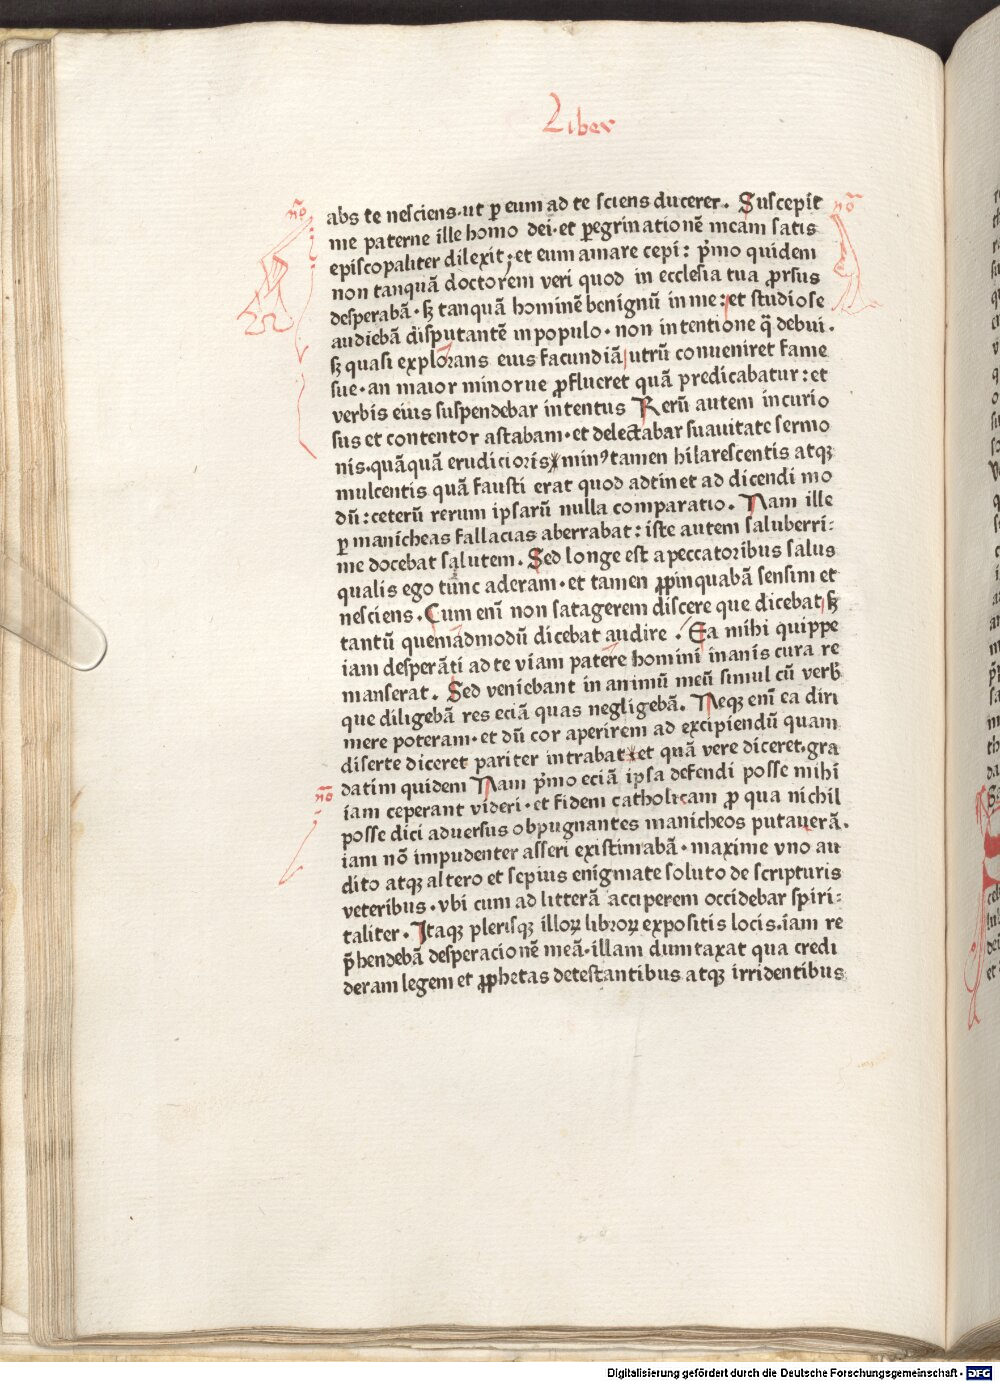 Liber
abs te nesciens·ut ꝑ eum ad te sciens ducerer. Suscepit
me paterne ille homo dei·et ꝑegrinationē meam satis
episcopaliter dilexit; et eum amare cepi: p̄mo quidem
non tanquā doctorem veri quod in ecclesia tua ꝓrsus
desperabā·sꝫ tanquā hominē benignū in me: et studiose
audiebā disputantē in populo·non intentione q̄ debui.
sꝫ quasi explorans eius facundiā utrū conueniret fame
sue·an maior minorue ꝓflueret quā predicabatur: et
verbis eius suspendebar intentus Rerū autem incurio
sus et contentor astabam·et delectabar suauitate sermo
nis·quāquā erudicioris minꝰ tamen hilarescentis atqꝫ
mulcentis quā fausti erat quod adtinet ad dicendi mo
dū: ceterū rerum ipsarū nulla comparatio. Nam ille
ꝑ manicheas fallacias aberrabat: iste autem saluberri:
me docebat salutem. Sed longe est a peccatoribus salus
qualis ego tunc aderam·et tamen ꝓpinquabā sensim et
nesciens. Cum enī non satagerem discere que dicebat sꝫ
tantū quemadmodū dicebat audire. Ea mihi quippe
iam desperāti ad te viam patere homini inanis cura re
manserat. Sed veniebant in animū meū simul cū verb̄
que diligebā res eciā quas negligebā. Neqꝫ enī ea diri
mere poteram·et dū cor aperirem ad excipiendū quam
diserte diceret pariter intrabat et quā vere diceret·gra
datim quidem Nam p̄mo eciā ipsa defendi posse mihi
iam ceperant videri·et fidem catholicam ꝓ qua nichil
posse dici aduersus obpugnantes manicheos putauerā.
iam nō impudenter asseri existimabā·maxime vno au
dito atqꝫ altero et sepius enigmate soluto de scripturis
veteribus·vbi cum ad litterā acciperem occidebar spiri:
taliter. Itaqꝫ plerisqꝫ illoꝝ libroꝝ expositis locis·iam re
p̄hendebā desperacionē meā·illam dumtaxat qua credi
deram legem et ꝓphetas detestantibus atqꝫ irridentibus
nō
nō
nō
Digitalisierung gefördert durch die Deutsche Forschungsgemeinschaft - DFG